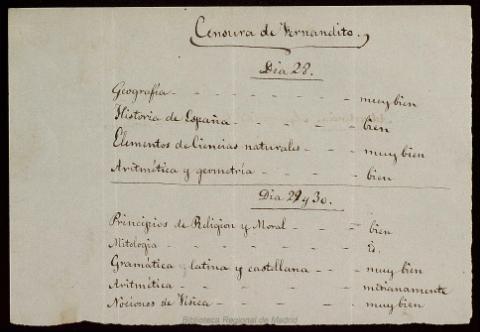 Censura de Fernandito.
Dia 28.
Geografía - - - - - - - muy bien
Historia de España - - - - - bien
Elementos de Ciencias naturales - - - muy bien
Aritmética y geometría - - - - bien
Dia 29 y 30.
Principios de Religion y Moral - - - bien
Mitologia - - - - - - - - Id.
Gramática latina y castellana - - - muy bien
Aritmética - - - - - - - medianamente
Nociones de Física - - - - - muy bien
Biblioteca Regional de Madrid